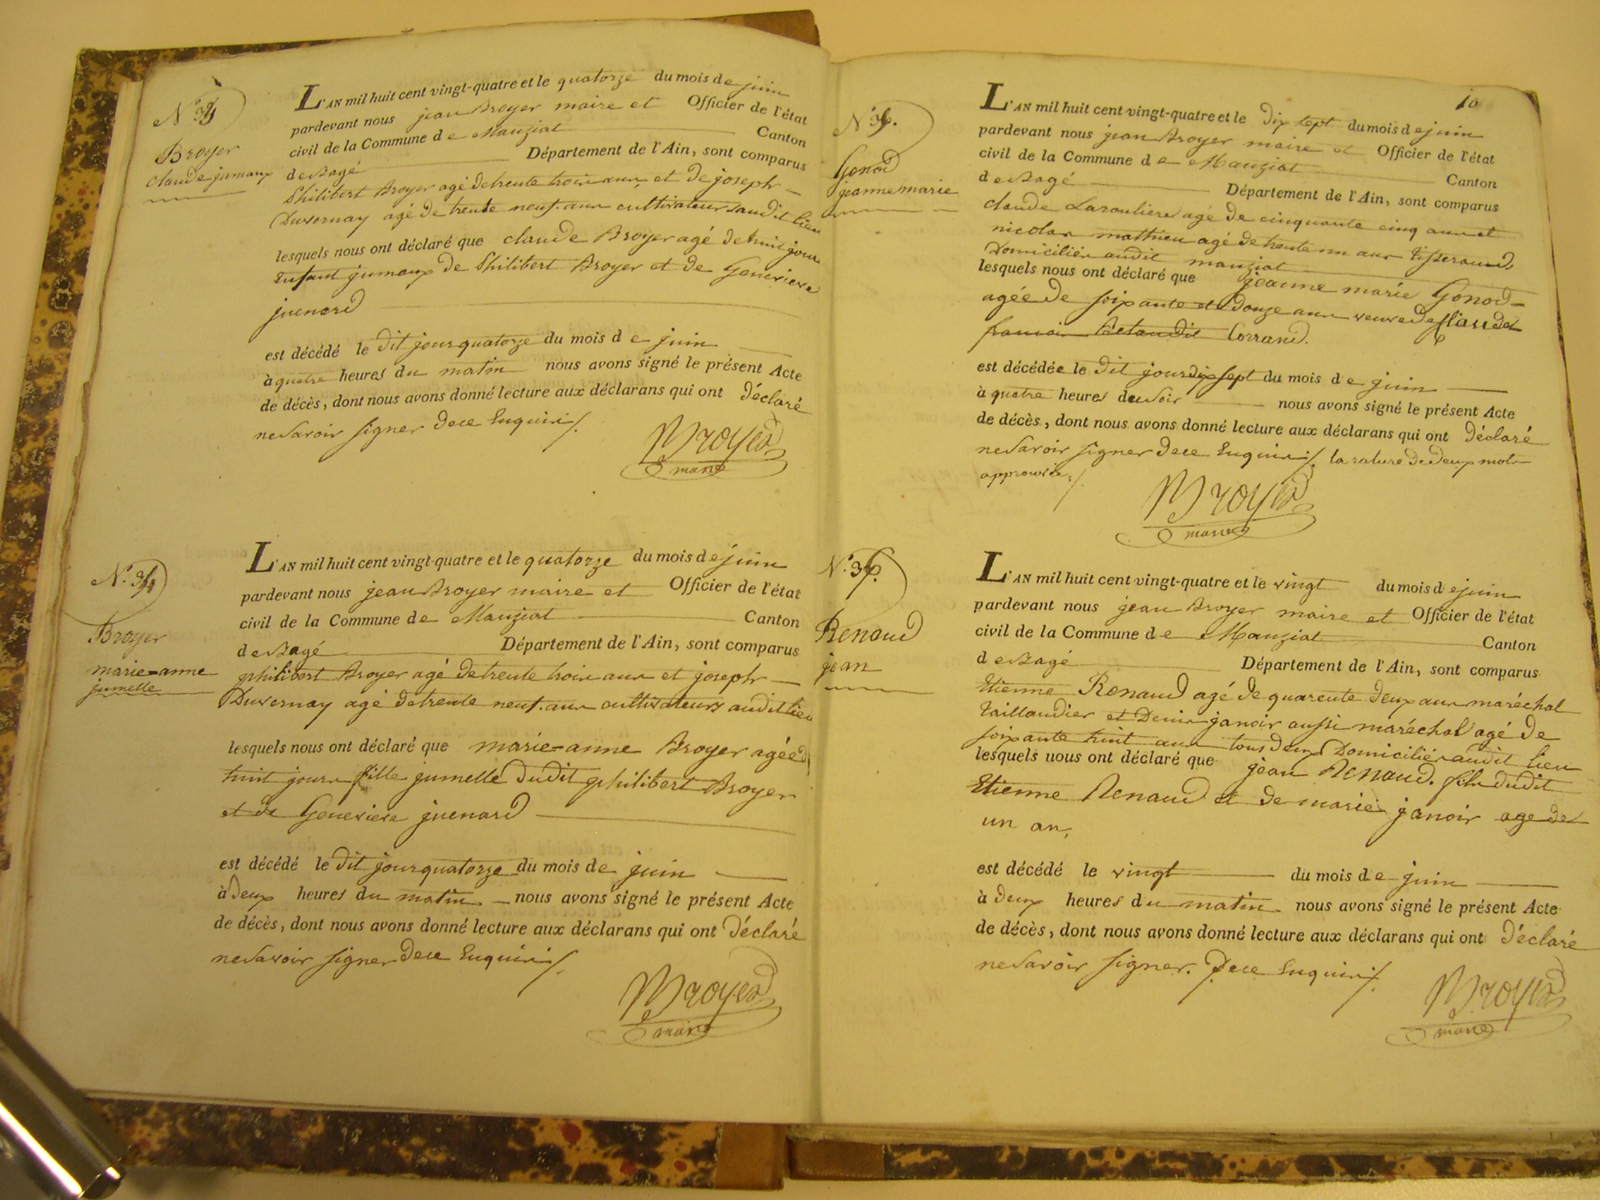 Broyer
claude jumaux
L'AN mil huit cent vingt-quatre et le quatorze du mois de juin
pardevant nous jean Broyer maire et Officier de l'état
civil de la Commune de Manziat Canton
de Bagé Département de l'Ain, sont comparus
Philibert Broyer agé de trente trois ans et de joseph
Duvernay agé de trente neuf ans cultivateurs audit lieu
lesquels nous ont déclaré que claude Broyer agé de huit jours
Enfant jumaux de Philibert Broyer et de Genevieve
juenard
est décédé le dit jour quatorze du mois de juin
à quatre heures du matin nous avons signé le présent Acte
de décès, dont nous avons donné lecture aux déclarans qui ont déclaré
ne Savoir signer de ce Enquis
Broyer
maire
N.º 34
Broyer
marie=anne
jumelle
L'AN mil huit cent vingt-quatre et le quatorze du mois de juin
pardevant nous jean Broyer maire et Officier de l'état
civil de la Commune de Manziat Canton
de Bagé Département de l'Ain, sont comparus
philibert Broyer agé de trente trois ans et joseph
Duvernay agé de trente neuf ans cultivateurs audit lieu
lesquels nous ont déclaré que marie=anne Broyer agée de
huit jours fille jumelle dudit philibert Broyer
et de Genevieve juenard
est décédé le dit jour quatorze du mois de juin
à deux heures du matin nous avons signé le présent Acte
de décès, dont nous avons donné lecture aux déclarans qui ont déclaré
ne Savoir signer de ce Enquis
Broyer
maire
10
Gonod
jeanne marie
L'AN mil huit cent vingt-quatre et le dix sept du mois de juin
pardevant nous jean Broyer maire et Officier de l'état
civil de la Commune de Manziat Canton
de Bagé Département de l'Ain, sont comparus
claude Larouliere agé de cinquante cinq ans et
nicolas mathieu agé de trente un ans Tisserands
Domiciliés audit manziat
lesquels nous ont déclaré que jeanne marie Gonod
agée de soixante et douze ans veuve de
francois Corrand.
est décédée le dit jour dix sept du mois de juin
à quatre heures du soir nous avons signé le présent Acte
de décès, dont nous avons donné lecture aux déclarans qui ont déclaré
ne Savoir signer de ce Enquis la rature de deux mots
approuvée
Broyer
maire
N.º 36.
Renaud
jean
L'AN mil huit cent vingt-quatre et le vingt du mois de juin
pardevant nous jean Broyer maire et Officier de l'état
civil de la Commune de Manziat Canton
de Bagé Département de l'Ain, sont comparus
Etienne Renaud agé de quarente deux ans maréchal
Taillandier et Denis janoir aussi maréchal agé de
soixante huit ans tous deux Domiciliés audit lieu
lesquels nous ont déclaré que jean Renaud. fils dudit
Etienne Renaud et de marie janoir age de
un an,
est décédé le vingt du mois de juin
à deux heures du matin nous avons signé le présent Acte
de décès, dont nous avons donné lecture aux déclarans qui ont déclaré
ne Savoir signer. De ce Enquis
Broyer
maire